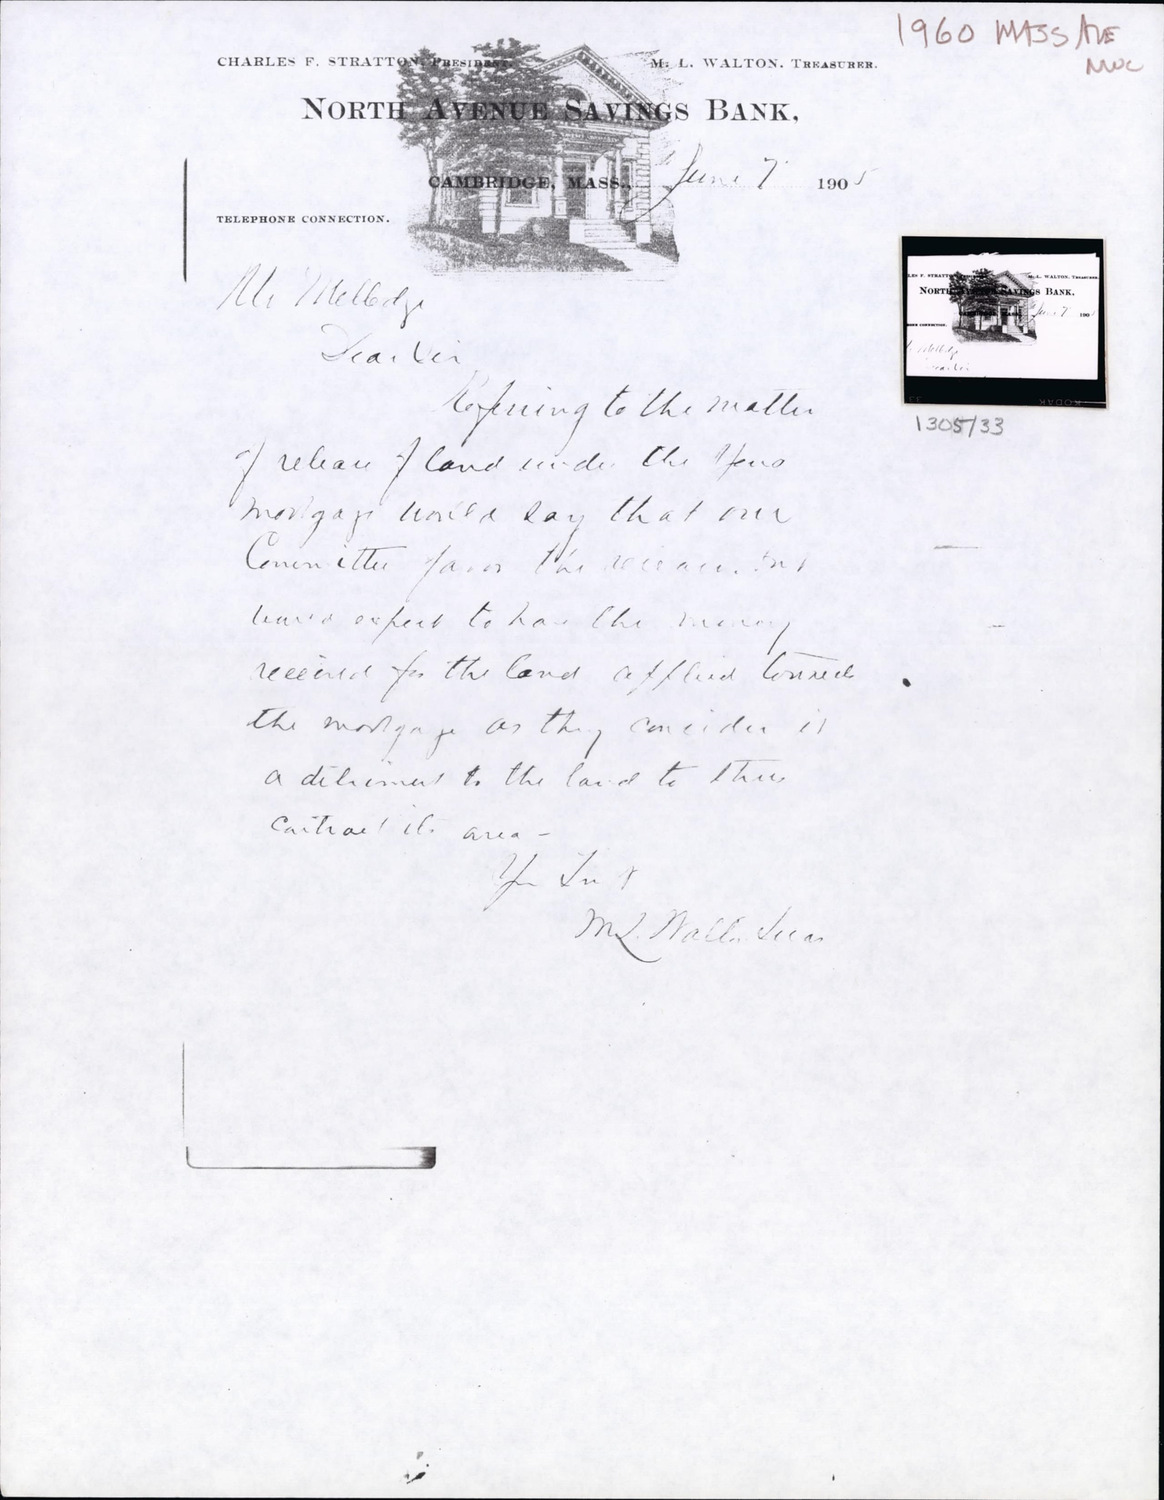 1960 MASS AVE
CHARLES F. STRATTON, PRESIDENT. M. L. WALTON, TREASURER.
NORTH AVENUE SAVINGS BANK,
CAMBRIDGE, MASS., June 7 1905
TELEPHONE CONNECTION.
Mr Melledge
Dear Sir
Referring to the matter
of release of land under the
mortgage would say that our
Committee favor the release, but
would expect to have the money
received for the land applied towards
the mortgage as they consider it
a detriment to the land to thus
contract its area -
Yrs Tr
M L. Walton Treas
LES F. STRATT M. L. WALTON, TREASURER
NORTH AVENUE SAVINGS BANK,
June 7 190
CONNECTION.
Melledge
Dear Sir
KODAK
33
1305/33